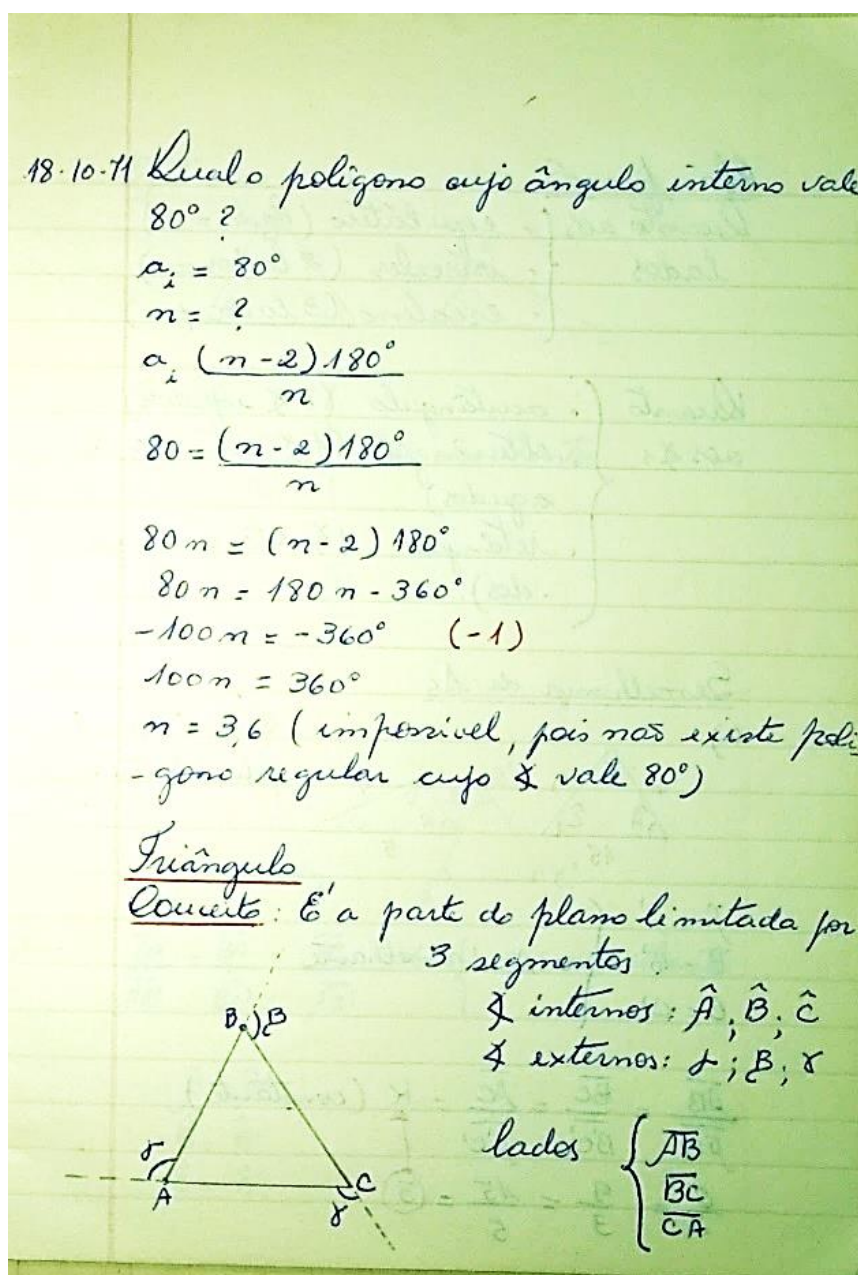 18.10.71 Qual o polígono cujo ângulo interno vale
80° ?
a_i = 80°
n = ?
a_i (n-2)180°
n
80 = (n-2)180°
n
80n = (n-2) 180°
80n = 180n - 360°
-100n = -360° (-1)
100n = 360°
n = 3,6 (impossível, pois não existe polí
-gono regular cujo ∡ vale 80°)
Triângulo
Conceito: É a parte do plano limitada por
3 segmentos.
∡ internos: Â; B̂; Ĉ
∡ externos: α; β; γ
B β
lados { AB
BC
CA
A C
γ